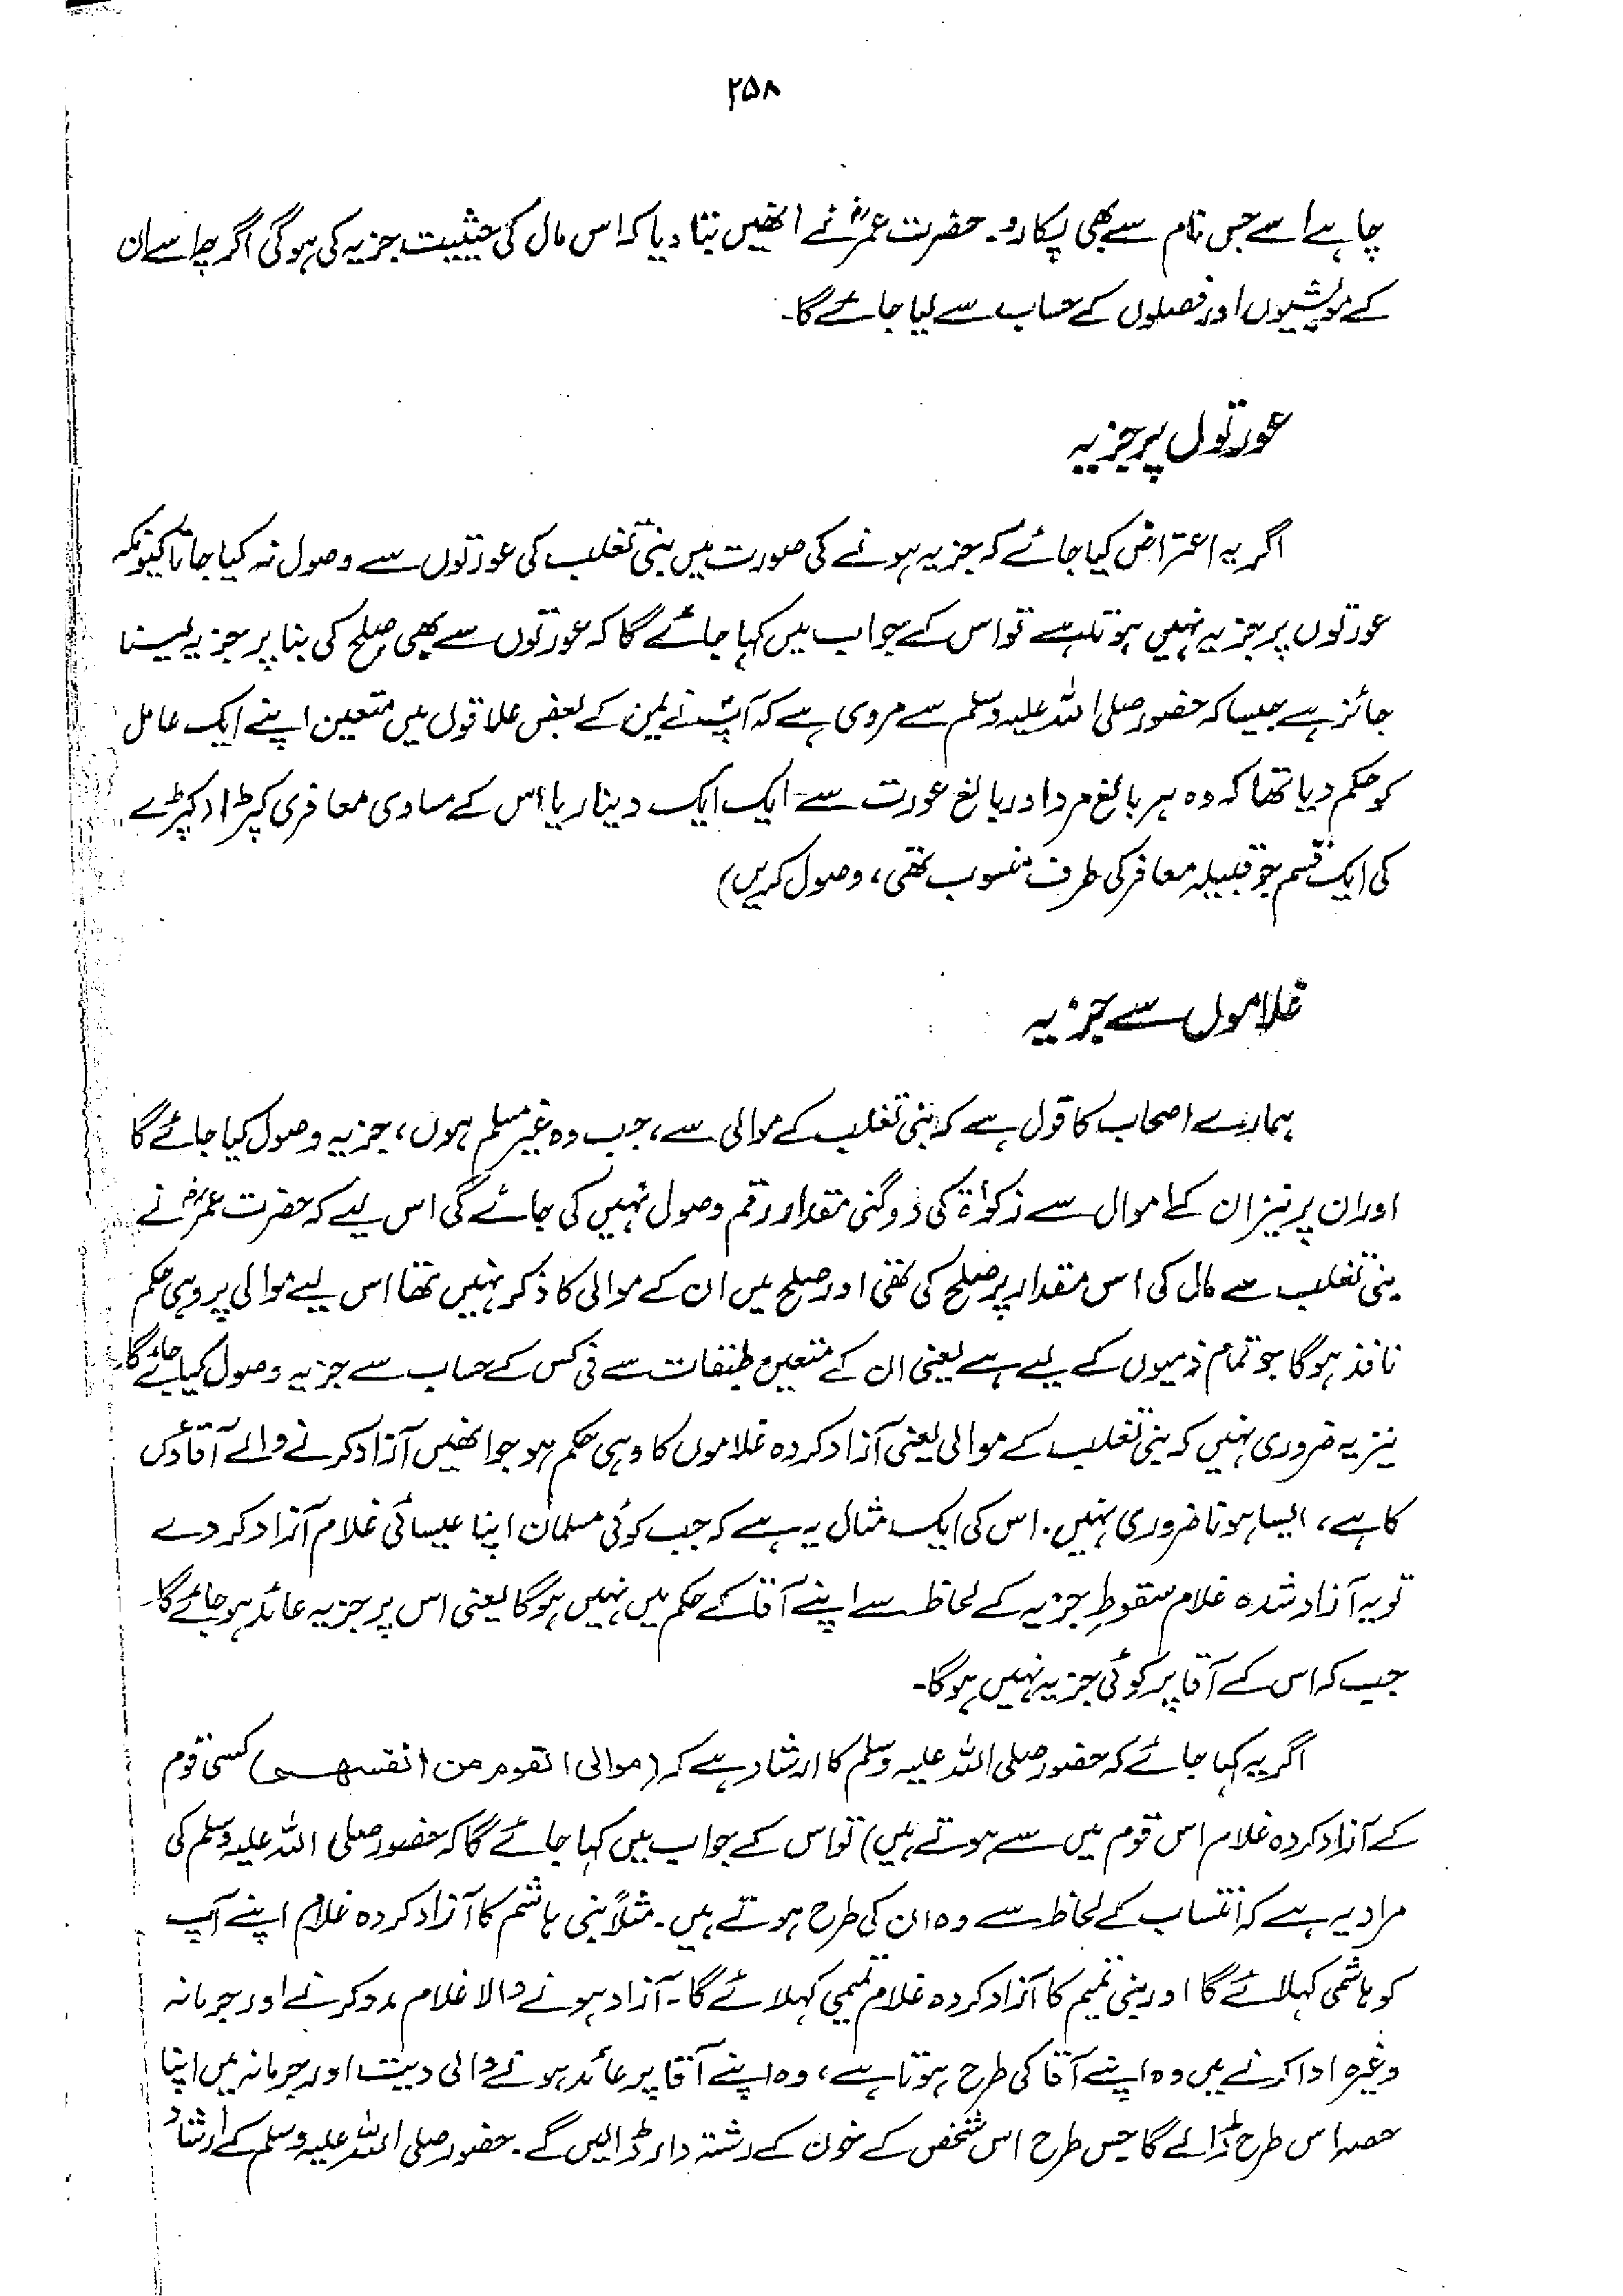 ۲۵۸
چاہے اسے جس نام سے بھی پکارو۔ حضرت عمرؓ نے انھیں بتا دیا کہ اس مال کی حیثیت جزیہ کی ہوگی اگرچہ اسے ان
کے مویشیوں اور فصلوں کے حساب سے لیا جائے گا۔
عورتوں پر جزیہ
اگر یہ اعتراض کیا جائے کہ جزیہ ہونے کی صورت میں بنی تغلب کی عورتوں سے وصول نہ کیا جاتا کیونکہ
عورتوں پر جزیہ نہیں ہوتا ہے تو اس کے جواب میں کہا جائے گا کہ عورتوں سے بھی صلح کی بنا پر جزیہ لینا
جائز ہے جیسا کہ حضور صلی اللہ علیہ وسلم سے مروی ہے کہ آپؐ نے یمن کے بعض علاقوں میں متعین اپنے ایک عامل
کو حکم دیا تھا کہ وہ ہر بالغ مرد اور بالغ عورت سے ایک ایک دینار یا اس کے مساوی معافری کپڑا (کپڑے
کی ایک قسم جو قبیلہ معافر کی طرف منسوب تھی، وصول کریں)
غلاموں سے جزیہ
ہمارے اصحاب کا قول ہے کہ بنی تغلب کے موالی سے، جب وہ غیر مسلم ہوں، جزیہ وصول کیا جائے گا
اور ان پر نیز ان کے اموال سے زکوٰۃ کی دوگنی مقدار رقم وصول نہیں کی جائے گی اس لیے کہ حضرت عمرؓ نے
بنی تغلب سے مال کی اس مقدار پر صلح کی تھی اور صلح میں ان کے موالی کا ذکر نہیں تھا اس لیے موالی پر وہی حکم
نافذ ہوگا جو تمام ذمیوں کے لیے ہے یعنی ان کے متعین طبقات سے فی کس کے حساب سے جزیہ وصول کیا جائے گا۔
نیز یہ ضروری نہیں کہ بنی تغلب کے موالی یعنی آزاد کردہ غلاموں کا وہی حکم ہو جو انھیں آزاد کرنے والے آقاؤں
کا ہے، ایسا ہونا ضروری نہیں۔ اس کی ایک مثال یہ ہے کہ جب کوئی مسلمان اپنا عیسائی غلام آزاد کر دے
تو یہ آزاد شدہ غلام سقوطِ جزیہ کے لحاظ سے اپنے آقا کے حکم میں نہیں ہوگا یعنی اس پر جزیہ عائد ہو جائے گا۔
جب کہ اس کے آقا پر کوئی جزیہ نہیں ہوگا۔
اگر یہ کہا جائے کہ حضور صلی اللہ علیہ وسلم کا ارشاد ہے کہ (موالی القوم من انفسهم) کسی قوم
کے آزاد کردہ غلام اس قوم میں سے ہوتے ہیں) تو اس کے جواب میں کہا جائے گا کہ حضور صلی اللہ علیہ وسلم کی
مراد یہ ہے کہ انتساب کے لحاظ سے وہ ان کی طرح ہوتے ہیں۔ مثلاً بنی ہاشم کا آزاد کردہ غلام اپنے آپ
کو ہاشمی کہلائے گا اور بنی تمیم کا آزاد کردہ غلام تمیمی کہلائے گا۔ آزاد ہونے والا غلام مدد کرنے اور جرمانہ
وغیرہ ادا کرنے میں وہ اپنے آقا کی طرح ہوتا ہے، وہ اپنے آقا پر عائد ہونے والی دیت اور جرمانہ میں اپنا
حصہ اس طرح ڈالے گا جس طرح اس شخص کے خون کے رشتہ دار ڈالیں گے۔ حضور صلی اللہ علیہ وسلم کے ارشاد